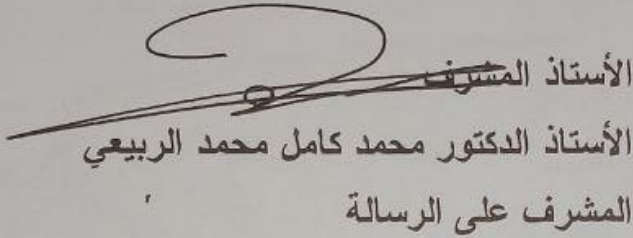 الأستاذ المشرف
الأستاذ الدكتور محمد كامل محمد الربيعي
المشرف على الرسالة